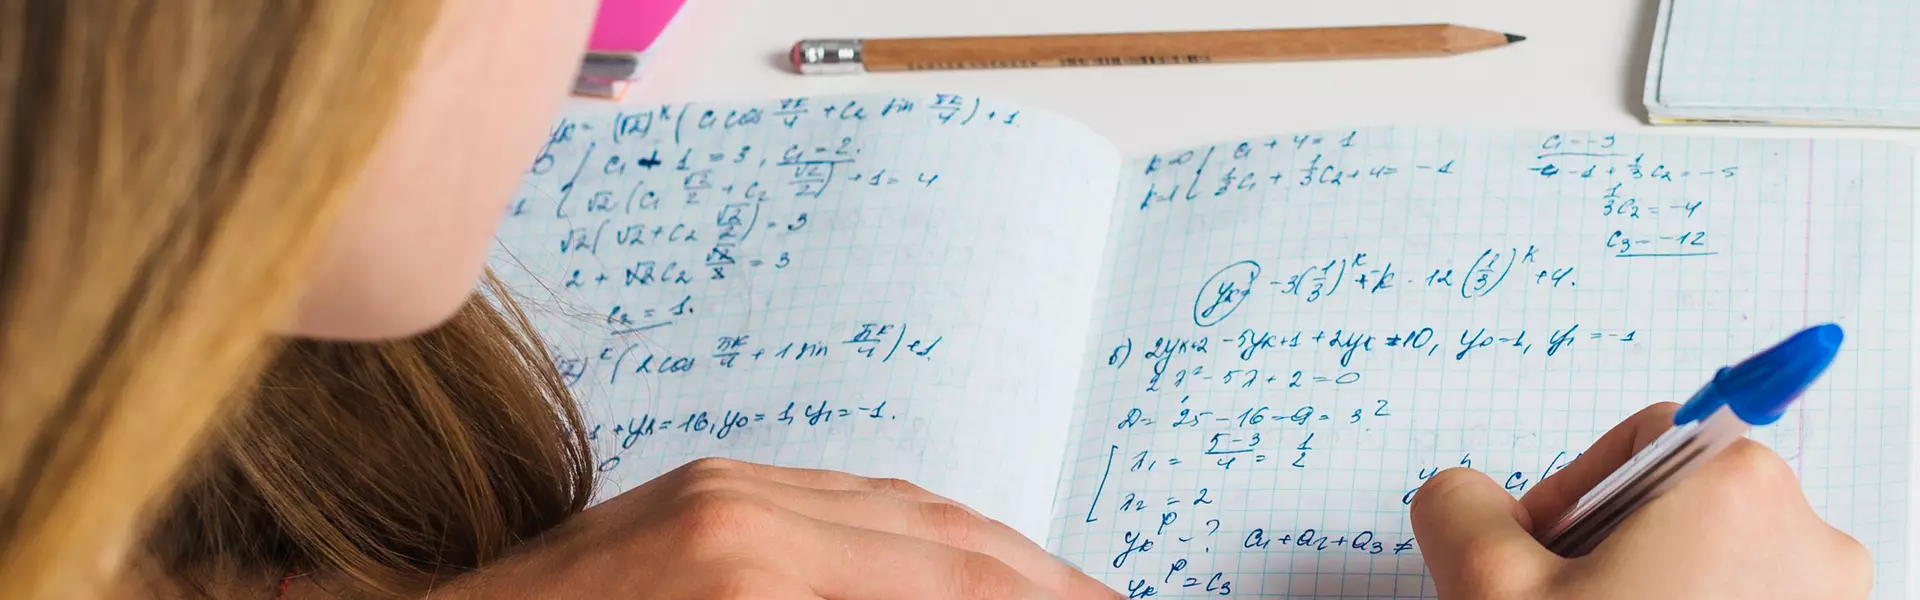 yk = (√2)^k ( C₁ cos πk/4 + C₂ sin πk/4 ) + 1.
0 { C₁ + 1 = 3, C₁ = 2.
1 { √2 ( C₁ √2/2 + C₂ √2/2 ) + 1 = 4
√2 ( √2 + C₂ √2/2 ) = 3
2 + √2 C₂ √2/2 = 3
C₂ = 1.
√2)^k ( 2 cos πk/4 + 1 sin πk/4 ) + 1.
1 + yk = 16, y₀ = 1, y₁ = -1.
0
k=0 { C₁ + 4 = 1
k=1 { 1/3 C₁ + 1/3 C₂ + 4 = -1
C₁ = -3
-1 + 1/3 C₂ = -5
1/3 C₂ = -4
C₃ = -12
yk = -3(1/3)^k + k · 12 (1/3)^k + 4.
б) 2yk+2 - 5yk+1 + 2yk = 10, y₀ = 1, y₁ = -1
2λ² - 5λ + 2 = 0
D = 25 - 16 = 9 = 3²
[ λ₁ = 5-3/4 = 1/2
λ₂ = 2
yk^p - ? a₁ + a₂ + a₃ ≠
yk^p = C₃
C₁ (